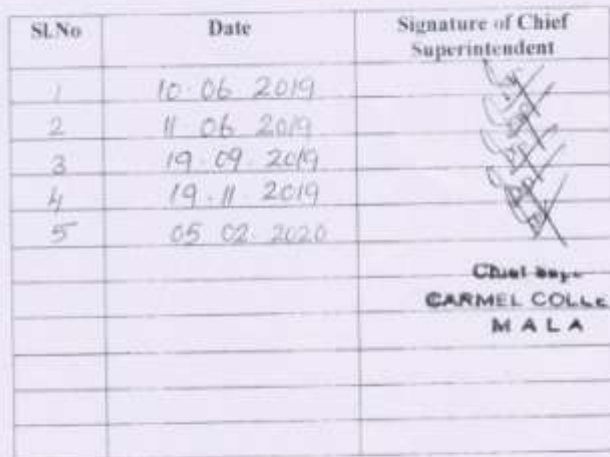 Sl.No Date Signature of Chief Superintendent
1 10.06.2019
2 11 06 2019
3 19.09.2019
4 19.11.2019
5 05 02.2020
Chief
CARMEL COLLE
MALA